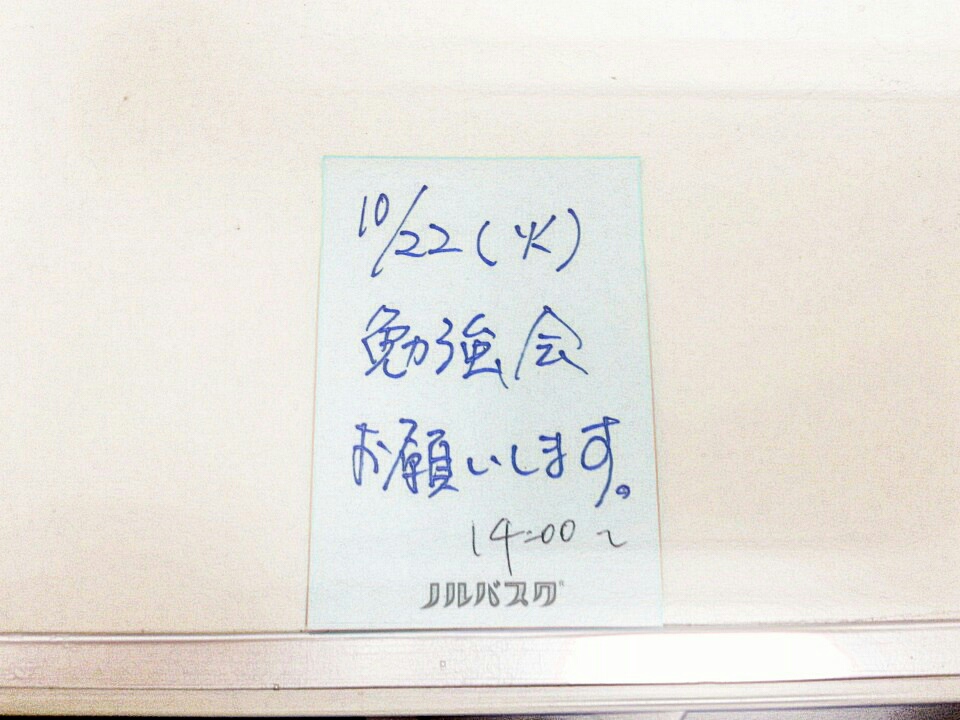 10/22(火)
勉強会
お願いします。
14:00～
ノルバスク®